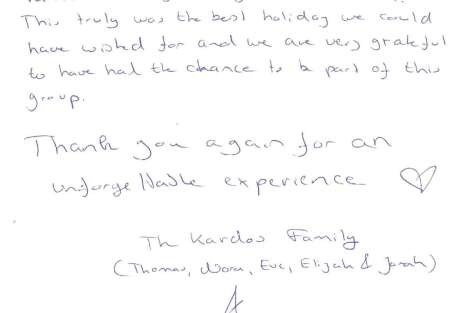 This truly was the best holiday we could
have wished for and we are very grateful
to have had the chance to be part of this
group.
Thank you again for an
unforgettable experience
Th Kardos Family
(Thomas, Nora, Eve, Elijah & Jonah)